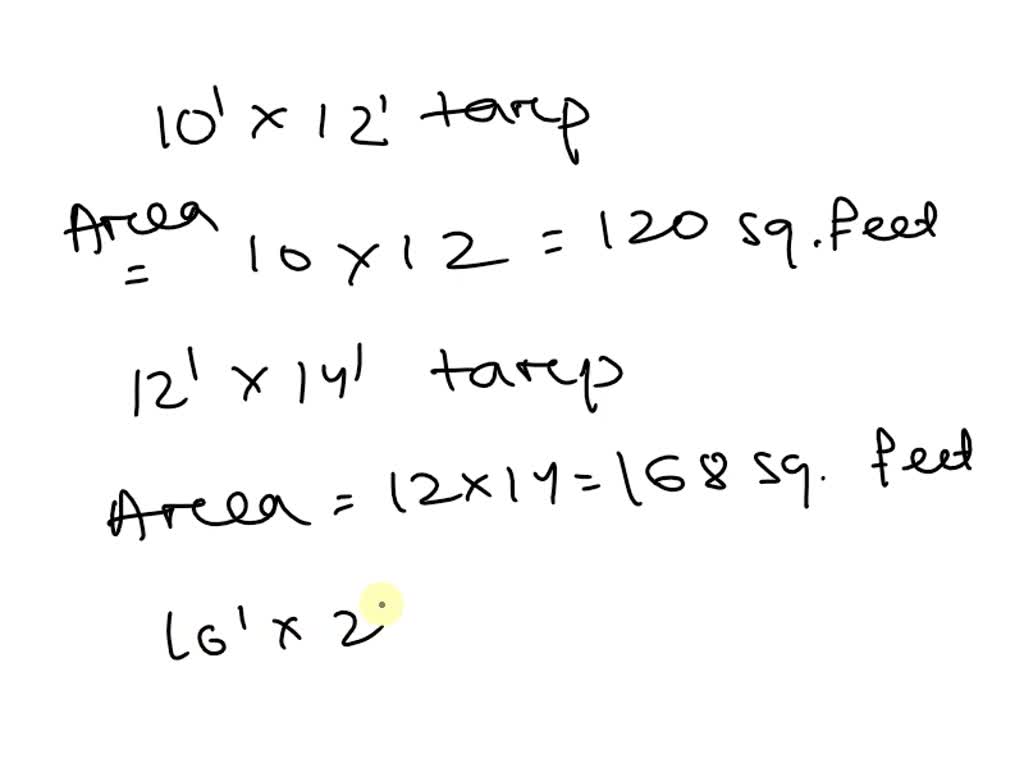 10' × 12' tarp
Area = 10 × 12 = 120 sq. feet
12' × 14' tarp
Area = 12 × 14 = 168 sq. feet
16' × 2